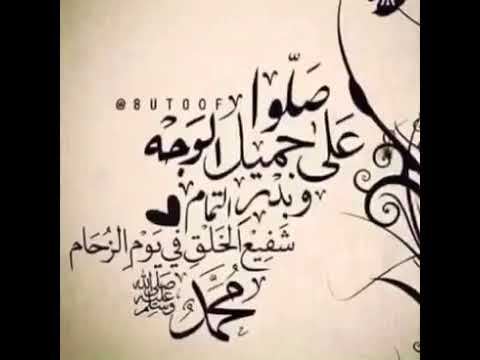 صَلّوا
@8UTOOF
عَلىٰ جَميل الوَجْه
وبَدْرِ التمام
شَفِيْع الخَلْقِ في يَوْمِ الزُحَام
مُحَمَّد
صلى الله عليه وسلم